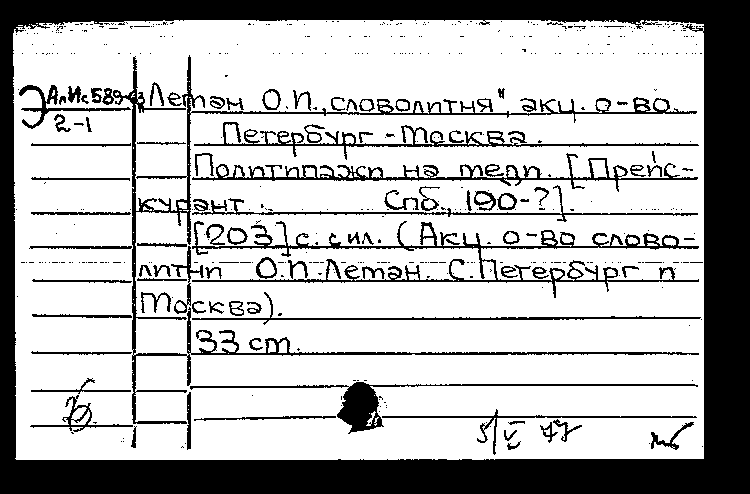 Э АлИс589-63
2-1
„Леман О.П., словолитня", акц. о-во.
Петербург-Москва.
Политипажи на меди. [Прейс-
курант. Спб., 190-?].
[203] с. с ил. (Акц. о-во слово-
литни О.П. Леман. С.Петербург и
Москва).
33 cm.
5/V 77